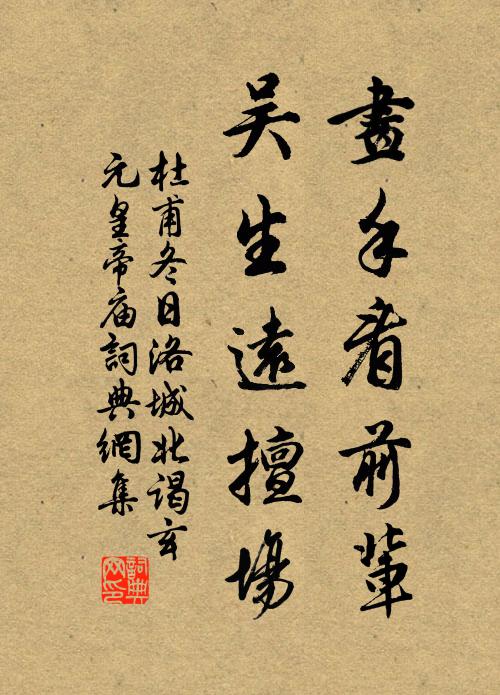 畫手看前輩
吳生遠擅場
杜甫冬日洛城北謁玄
元皇帝庙詞典網集
詞典
网印